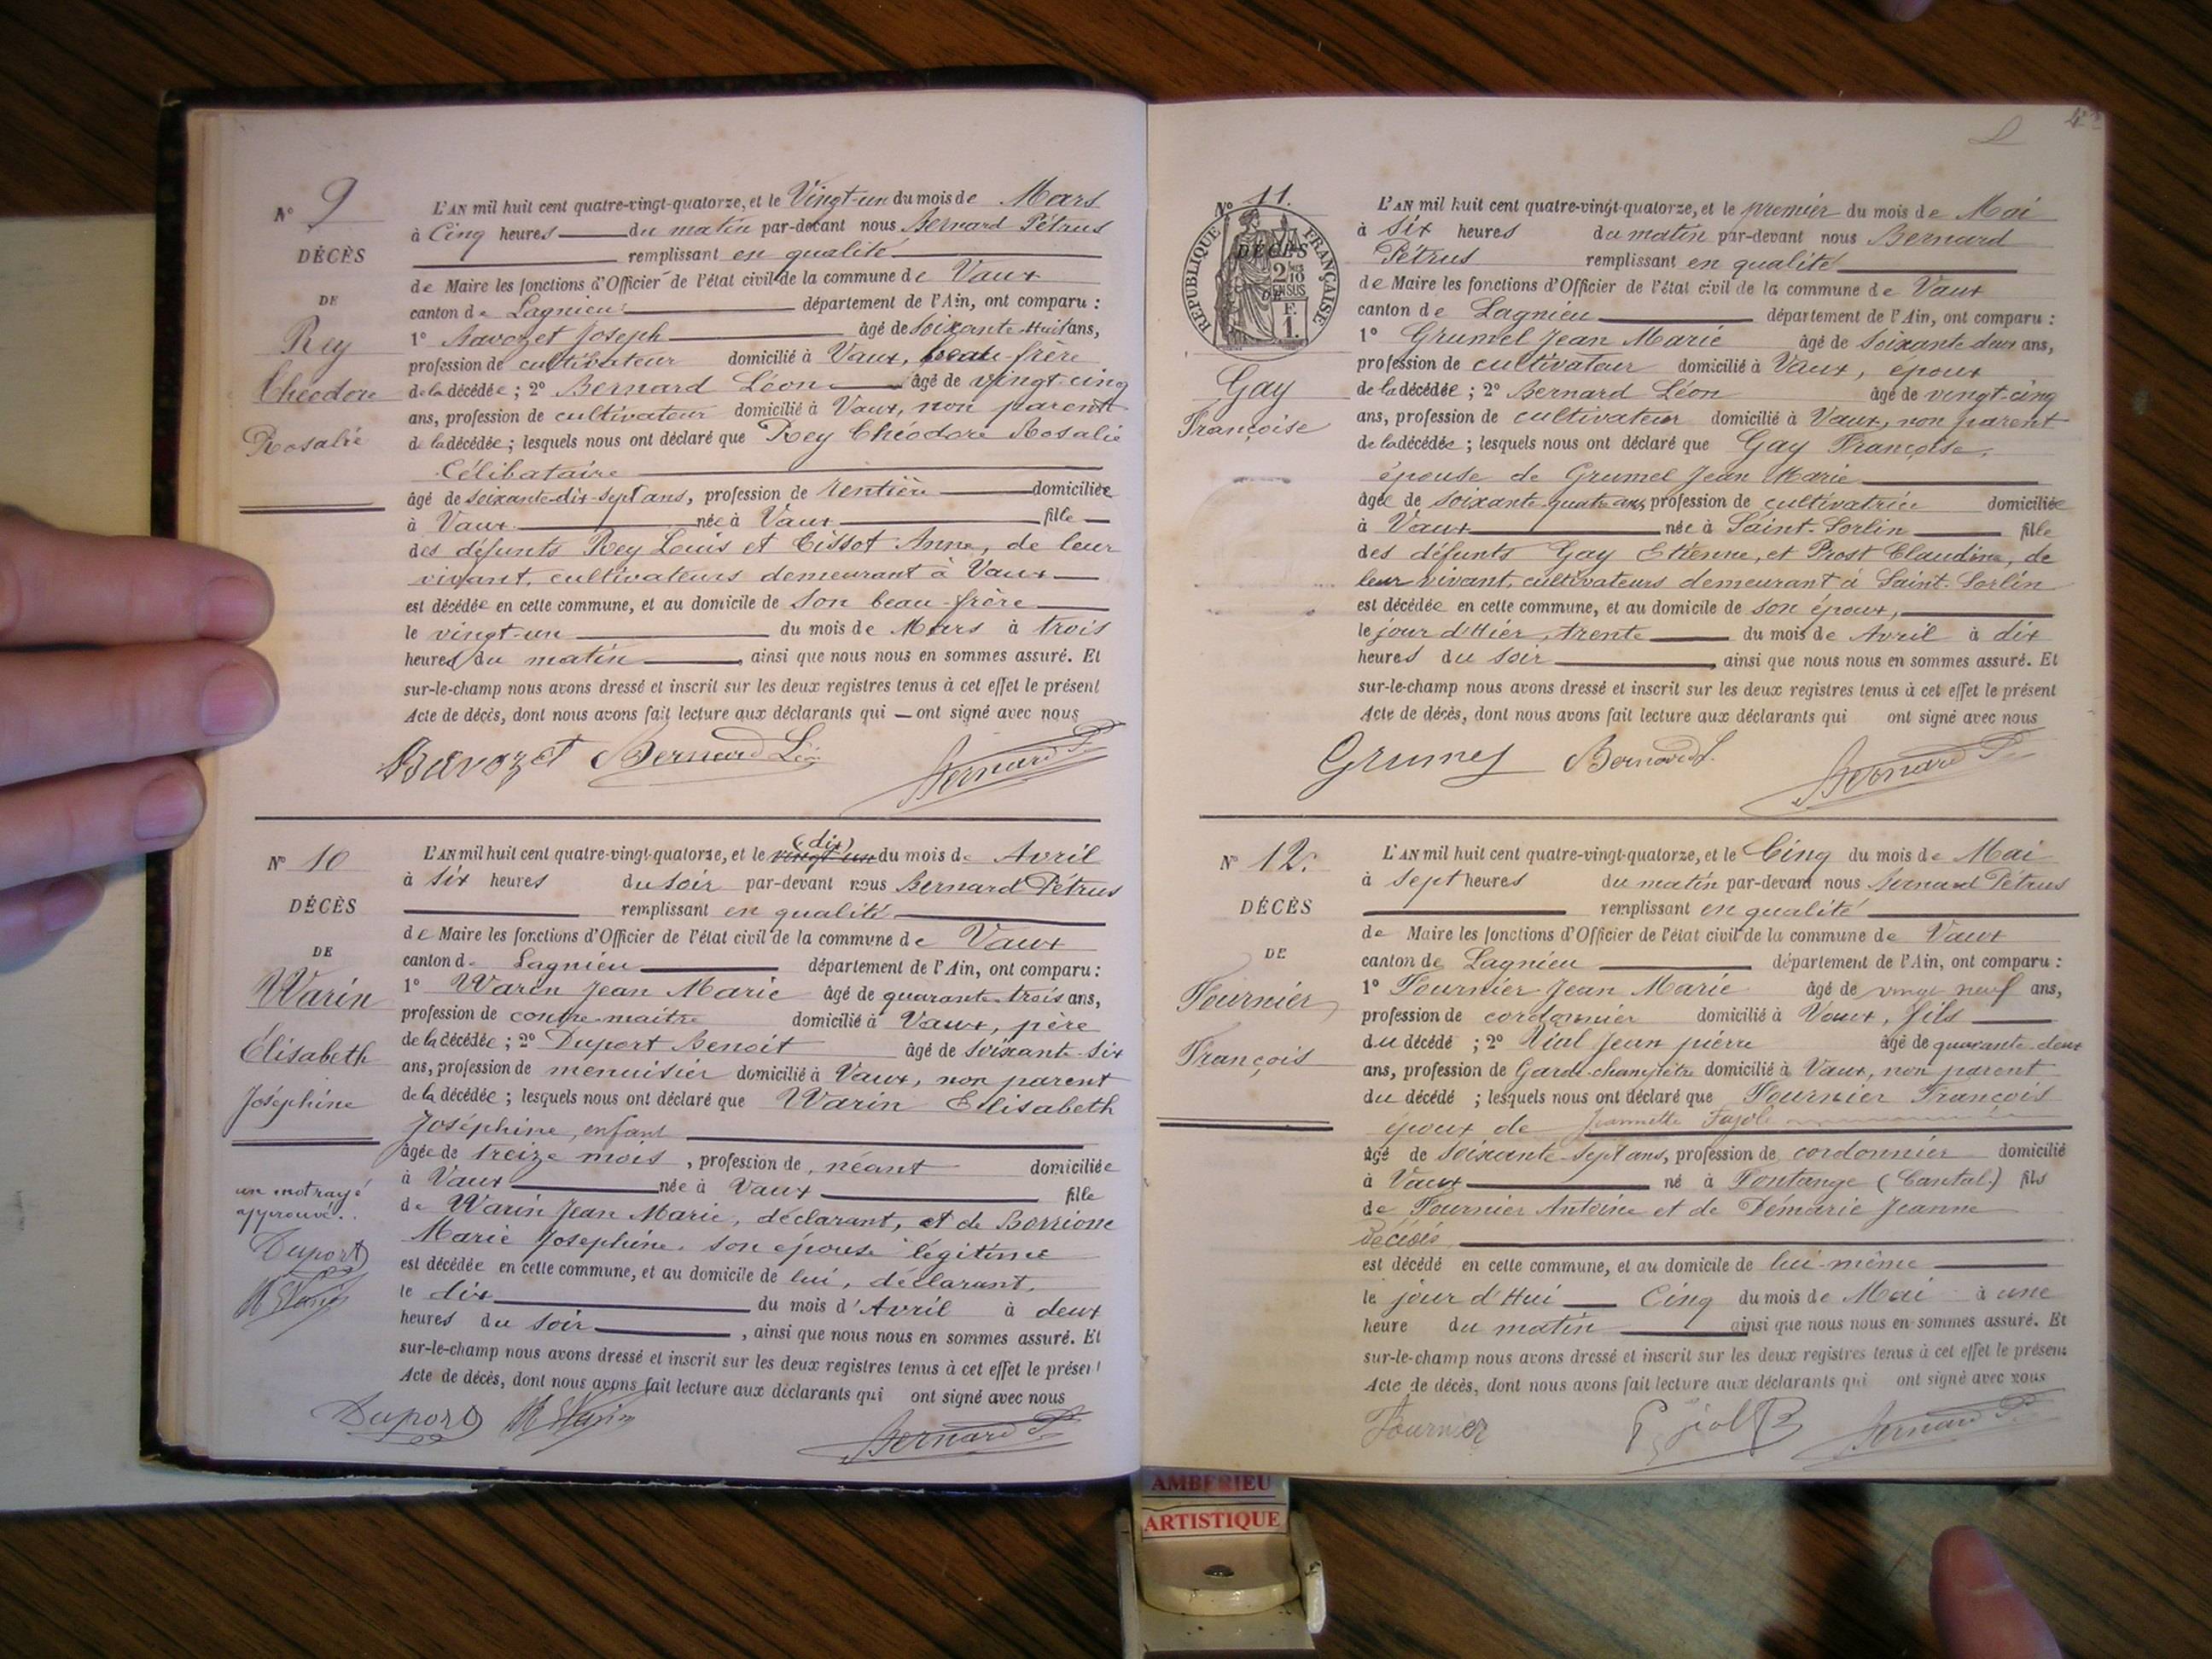 N° 9
DÉCÈS
DE
Rey
Théodore
Rosalie
L'AN mil huit cent quatre-vingt-quatorze, et le Vingt-un du mois de Mars
à Cinq heures du matin par-devant nous Bernard Pétrus
remplissant en qualité
de Maire les fonctions d'Officier de l'état civil de la commune de Vaux
canton de Lagnieu département de l'Ain, ont comparu :
1° Joseph âgé de soixante-huit ans,
profession de cultivateur domicilié à Vaux, beau-frère
de la décédée ; 2° Bernard Léon âgé de vingt-cinq
ans, profession de cultivateur domicilié à Vaux, non parent
de la décédée ; lesquels nous ont déclaré que Rey Théodore Rosalie
Célibataire
âgé de soixante-dix-sept ans, profession de rentière domiciliée
à Vaux née à Vaux fille
des défunts Rey Louis et Tissot Anne, de leur
vivant, cultivateurs demeurant à Vaux
est décédée en cette commune, et au domicile de son beau-frère
le vingt-un du mois de Mars à trois
heures du matin, ainsi que nous nous en sommes assuré. Et
sur-le-champ nous avons dressé et inscrit sur les deux registres tenus à cet effet le présent
Acte de décès, dont nous avons fait lecture aux déclarants qui ont signé avec nous
Bavozet Bernard Léon Bernard P.
N° 10
DÉCÈS
DE
Warin
Élisabeth
Joséphine
un mot rayé
approuvé.
Duport
L'AN mil huit cent quatre-vingt-quatorze, et le vingt-un (dix) du mois de Avril
à six heures du soir par-devant nous Bernard Pétrus
remplissant en qualité
de Maire les fonctions d'Officier de l'état civil de la commune de Vaux
canton de Lagnieu département de l'Ain, ont comparu :
1° Warin Jean Marie âgé de quarante-trois ans,
profession de contre-maître domicilié à Vaux, père
de la décédée ; 2° Duport Benoit âgé de soixante-six
ans, profession de menuisier domicilié à Vaux, non parent
de la décédée ; lesquels nous ont déclaré que Warin Elisabeth
Joséphine, enfant
âgée de treize mois, profession de néant domiciliée
à Vaux née à Vaux fille
de Warin Jean Marie, déclarant, et de Borrione
Marie Josephine, son épouse légitime
est décédée en cette commune, et au domicile de lui, déclarant,
le dix du mois d'Avril à deux
heures du soir, ainsi que nous nous en sommes assuré. Et
sur-le-champ nous avons dressé et inscrit sur les deux registres tenus à cet effet le présent
Acte de décès, dont nous avons fait lecture aux déclarants qui ont signé avec nous
Duport Bernard P.
N° 11.
RÉPUBLIQUE FRANÇAISE
DÉCÈS
2/10 EN SUS
DE
F.
1.
Gay
Françoise
L'AN mil huit cent quatre-vingt-quatorze, et le premier du mois de Mai
à six heures du matin par-devant nous Bernard
Pétrus remplissant en qualité
de Maire les fonctions d'Officier de l'état civil de la commune de Vaux
canton de Lagnieu département de l'Ain, ont comparu :
1° Grumel Jean Marie âgé de soixante deux ans,
profession de cultivateur domicilié à Vaux, époux
de la décédée ; 2° Bernard Léon âgé de vingt-cinq
ans, profession de cultivateur domicilié à Vaux, non parent
de la décédée ; lesquels nous ont déclaré que Gay Françoise,
épouse de Grumel Jean Marie
âgée de soixante-quatre ans, profession de cultivatrice domiciliée
à Vaux née à Saint-Sorlin fille
des défunts Gay Etienne, et Prost Claudine, de
leur vivant, cultivateurs demeurant à Saint-Sorlin
est décédée en cette commune, et au domicile de son époux,
le jour d'Hier, trente du mois de Avril à dix
heures du soir, ainsi que nous nous en sommes assuré. Et
sur-le-champ nous avons dressé et inscrit sur les deux registres tenus à cet effet le présent
Acte de décès, dont nous avons fait lecture aux déclarants qui ont signé avec nous
Grumel Bernard L. Bernard P.
N° 12.
DÉCÈS
DE
Fournier
François
L'AN mil huit cent quatre-vingt-quatorze, et le Cinq du mois de Mai
à sept heures du matin par-devant nous Bernard Pétrus
remplissant en qualité
de Maire les fonctions d'Officier de l'état civil de la commune de Vaux
canton de Lagnieu département de l'Ain, ont comparu :
1° Fournier Jean Marie âgé de vingt neuf ans,
profession de cordonnier domicilié à Vaux, fils
du décédé ; 2° Vial Jean pierre âgé de quarante-deux
ans, profession de Garde-champêtre domicilié à Vaux, non parent
du décédé ; lesquels nous ont déclaré que Fournier François
époux de Jeannette Fajole
âgé de soixante-sept ans, profession de cordonnier domicilié
à Vaux né à Fontange (Cantal) fils
de Fournier Antoine et de Démarie Jeanne
décédés
est décédé en cette commune, et au domicile de lui-même
le jour d'Hui Cinq du mois de Mai à une
heure du matin ainsi que nous nous en sommes assuré. Et
sur-le-champ nous avons dressé et inscrit sur les deux registres tenus à cet effet le présent
Acte de décès, dont nous avons fait lecture aux déclarants qui ont signé avec nous
Fournier Bernard P.
AMBERIEU
ARTISTIQUE